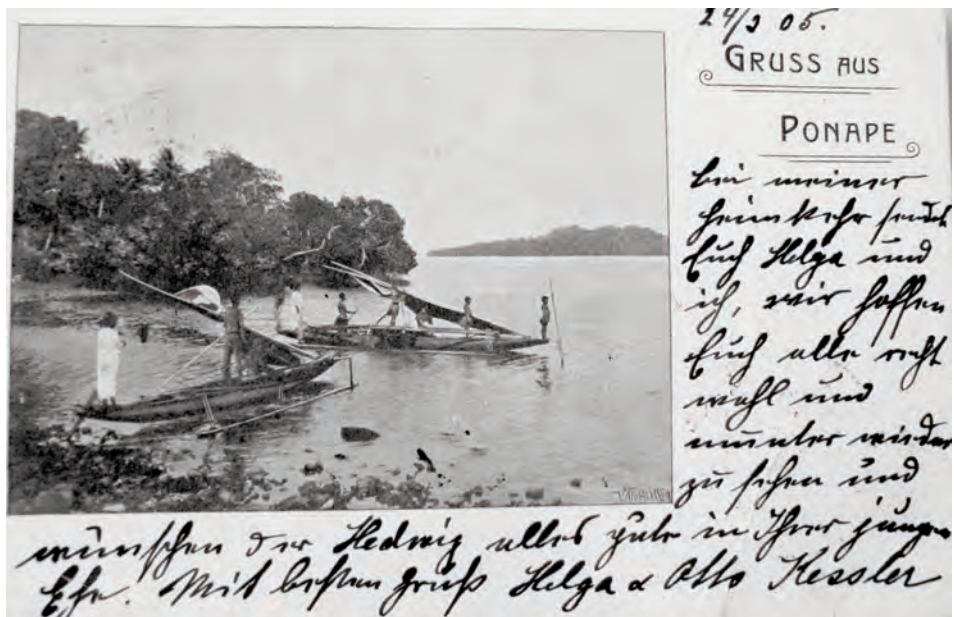 24/3 05.
GRUSS AUS
PONAPE
bei meiner
heimkehr sendet
Euch Helga und
ich, wir hoffen
Euch alle recht
wohl und
munter wieder
zu sehen und
wünschen der Hedwig alles gute in Ihrer jungen
Ehe. Mit besten gruß Helga & Otto Kessler